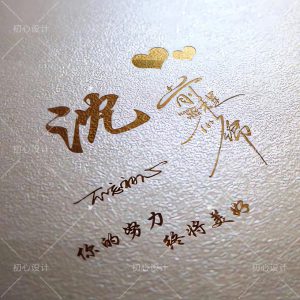 沈
前程似锦
不忘初心
你的努力 终将美好
初心设计